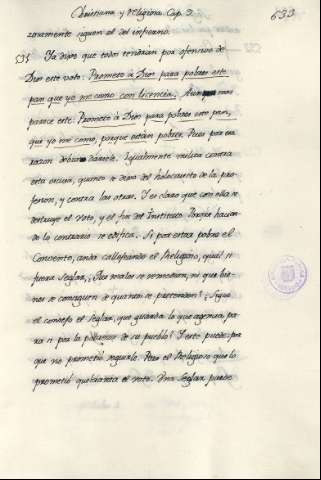 Christiana y Religiosa Cap. 9
633
zaramente siguen el del infierno.
531 Ya dixo que todos tendrian por ofensivo de
Dios este voto: Prometo à Dios para pobres este
pan que yo me como con licencia. Aunque mas
parece este: Prometo à Dios para pobres este pan,
que yo me como, porque están pobres. Pues por esa
razon deben dárselo. Igualmente milita contra
esta excusa, quanto se dixo del holocausto de la pro-
fesion, y contra las otras. Y es claro que con ella se
destruye el voto, y el fin del Instituto. Porque hacien
do lo contrario se edifica. Si por estar pobre el
Convento, anda callejeando el Religioso, qual si
fuera Seglar, ¿Los malos se remedian, ni que bie-
nes se consiguen de quantos se pretenden? ¿Sigue
el consejo el Seglar, que guarda lo que agencia, pa
ra si por la pobreza de su pueblo? Y este puede, por
que no prometió seguirlo. Pero el Religioso que lo
prometió quebranta el voto. Un Seglar puede